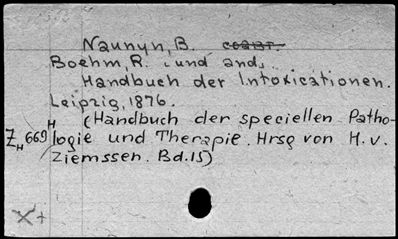 Naunyn, B. coaut.
Boehm, R. [und and.
Handbuch der Intoxicationen.
Leipzig, 1876.
(Handbuch der speciellen Patho-
Z H 669 H logie und Therapie. Hrsg von H. v.
Ziemssen. Bd. 15)
X +